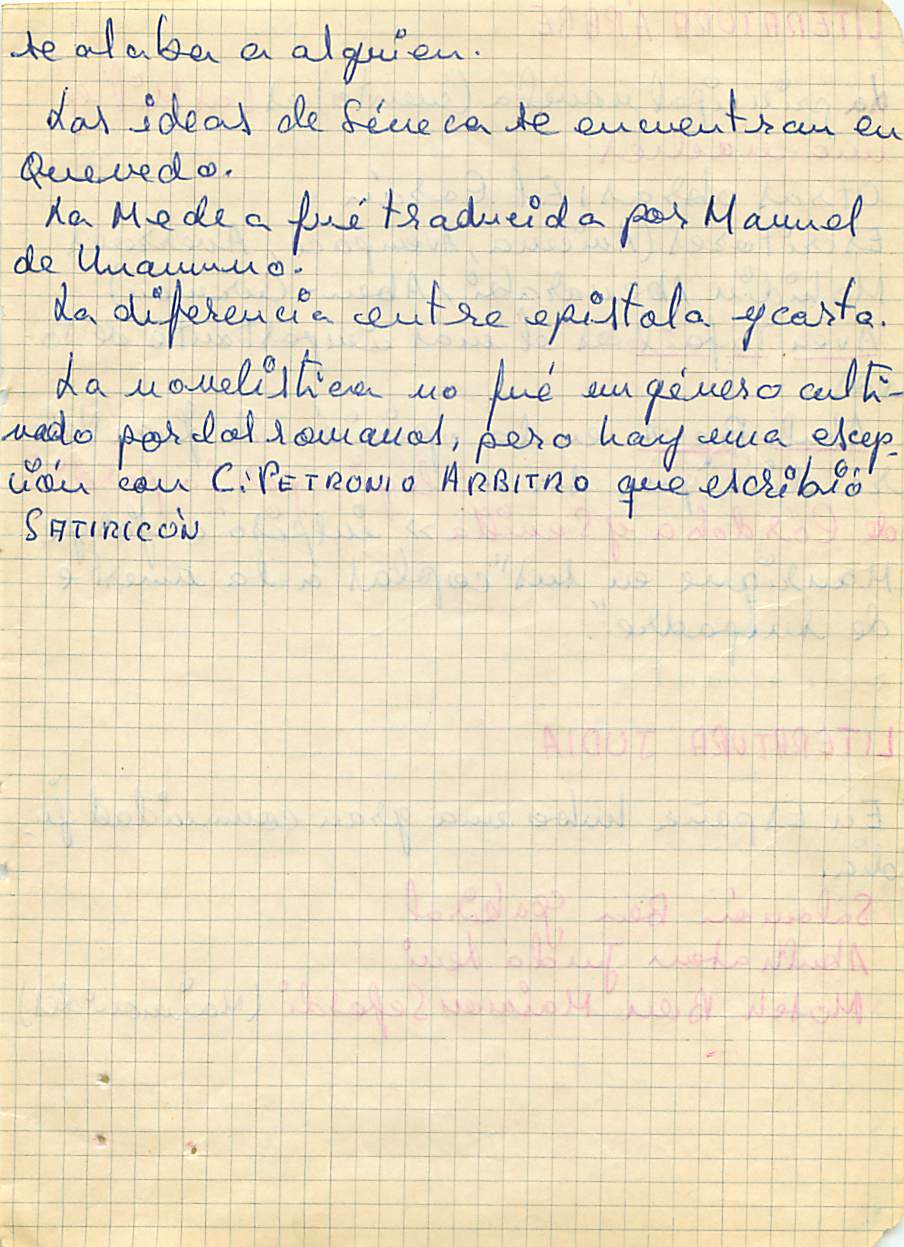 se alaba a alguien.
Las ideas de Séneca se encuentran en
Quevedo.
La Medea fué traducida por Manuel
de Unamuno.
La diferencia entre epistola y carta.
La novelística no fué un género culti-
vado por los romanos, pero hay una escep-
ción con C. PETRONIO ARBITRO que escribió
SATIRICÓN